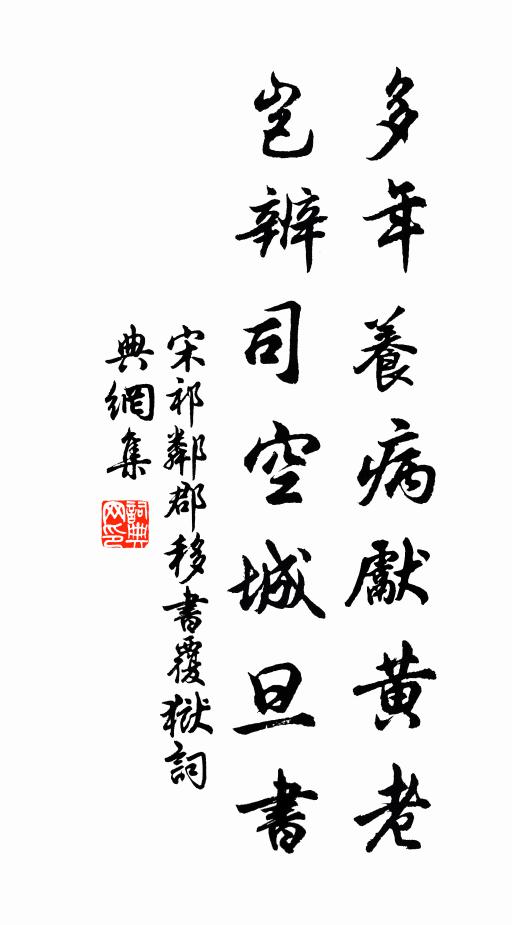 多年養病獻黄老
豈辨司空城旦書
宋祁鄰郡移書覆獄詞
典網集
詞典
网印